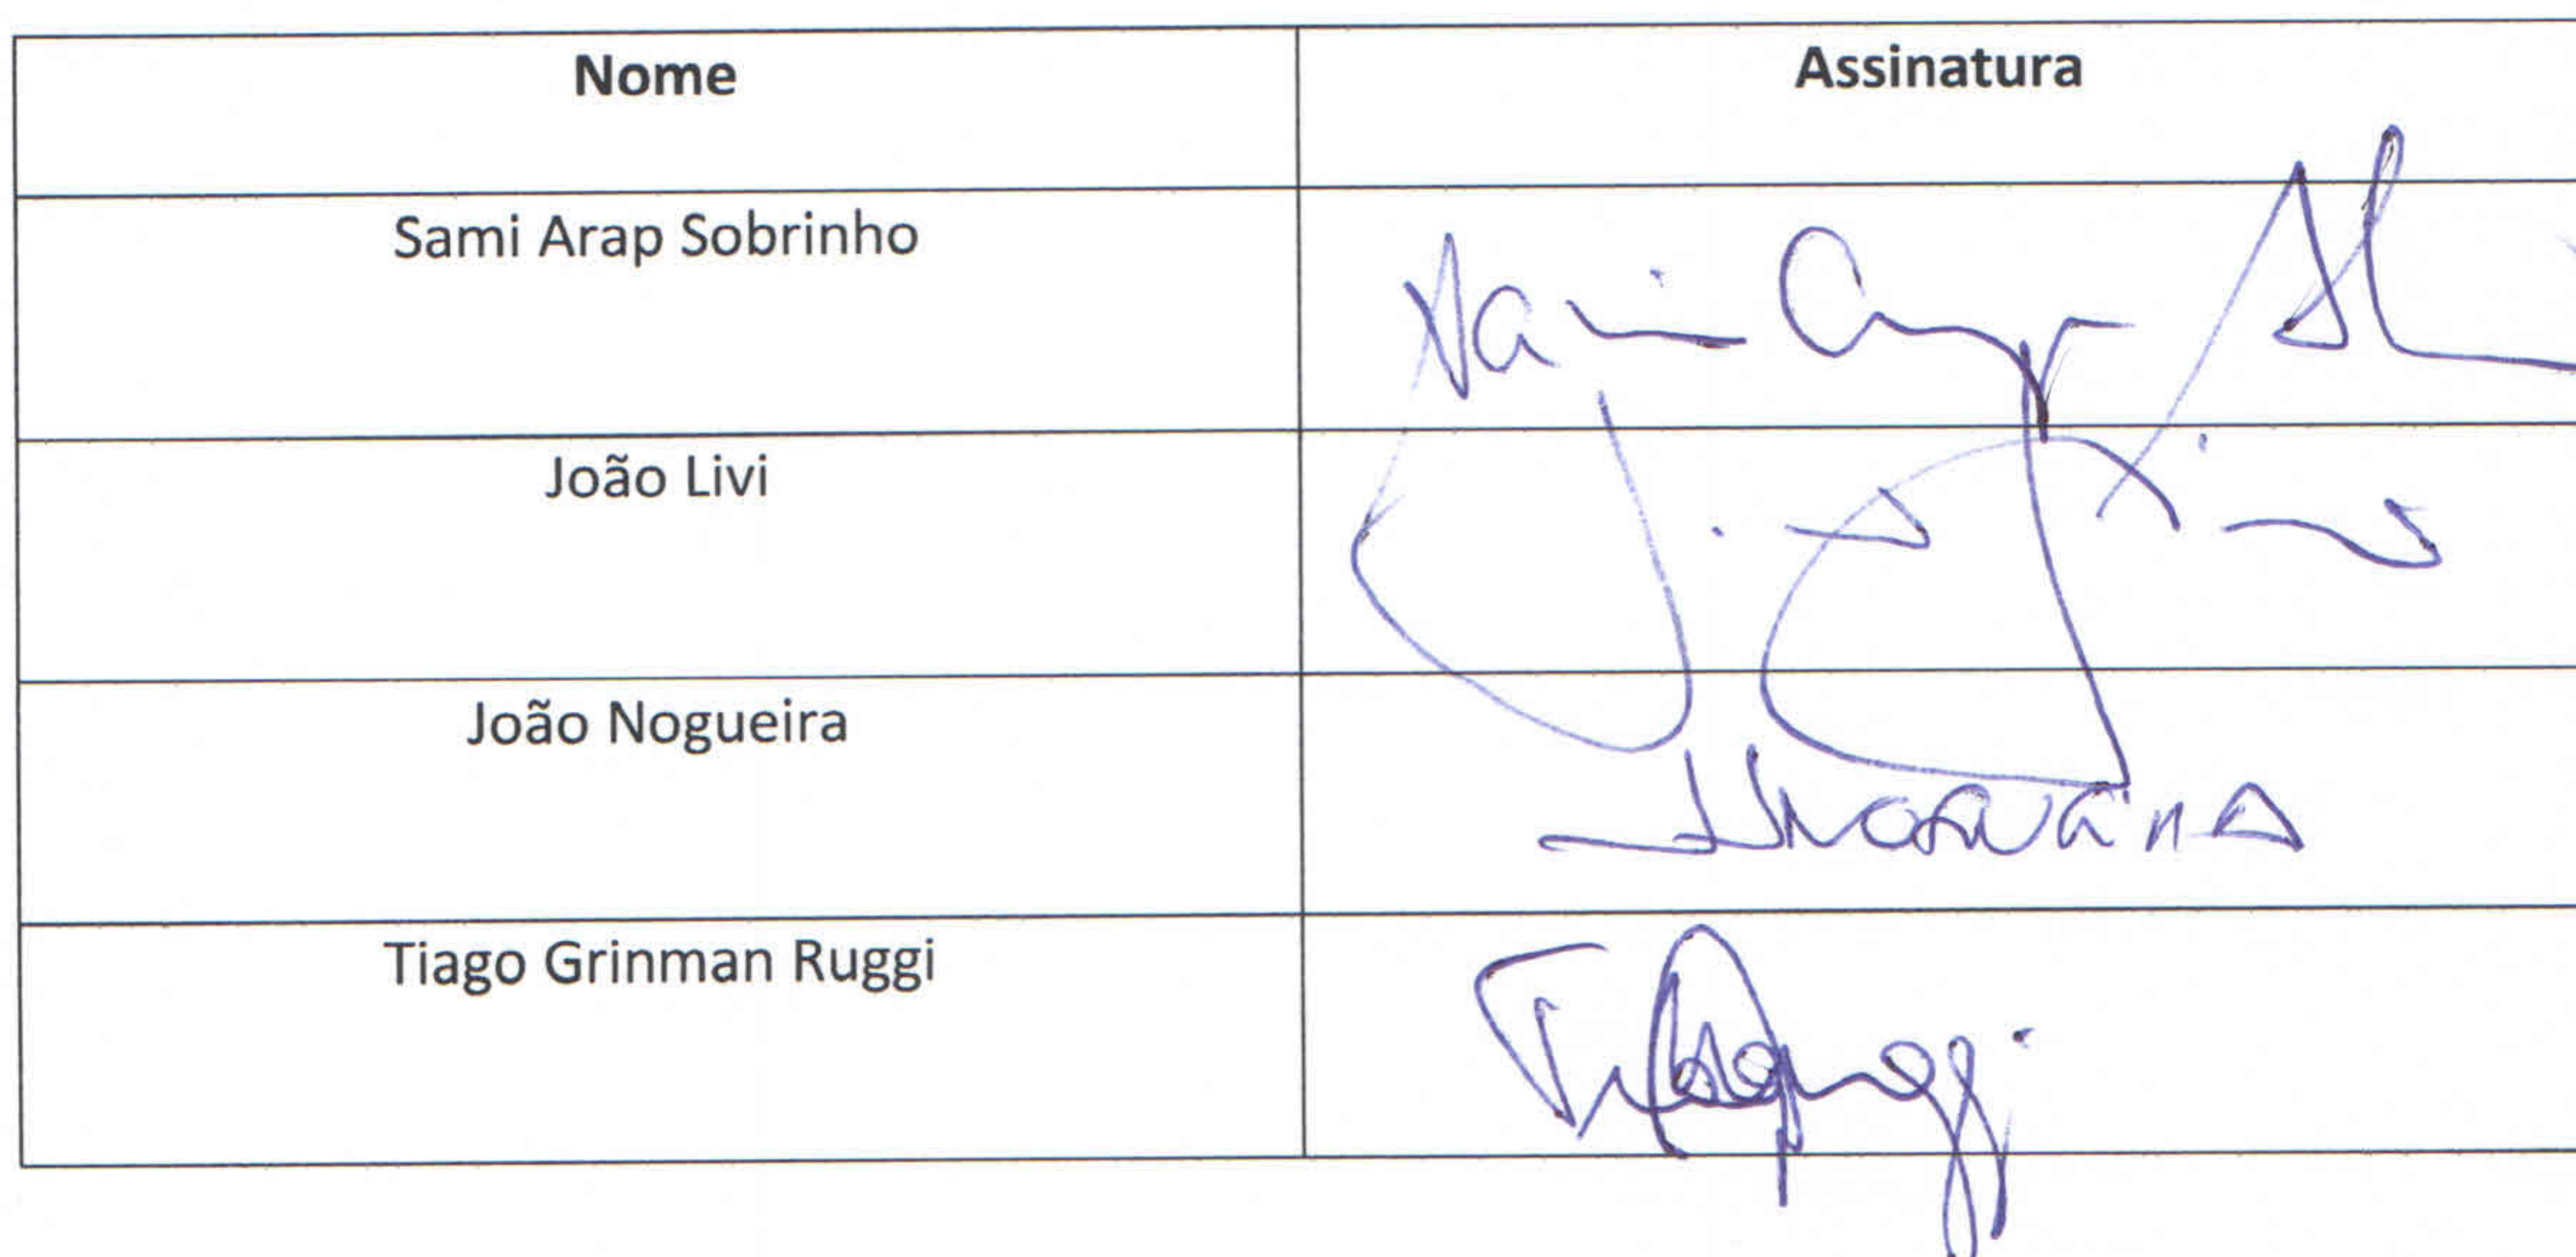 Nome Assinatura
Sami Arap Sobrinho
João Livi
João Nogueira
JNogueira
Tiago Grinman Ruggi